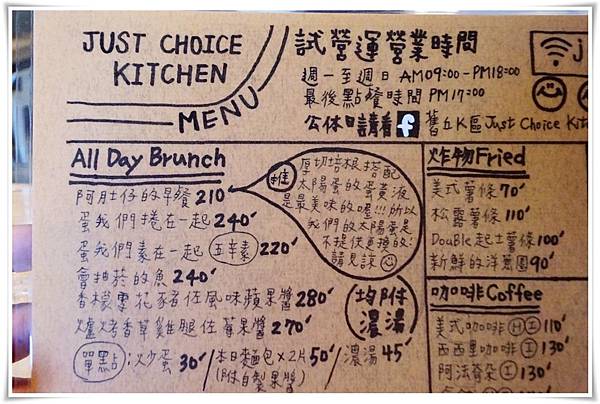 JUST CHOICE
KITCHEN
MENU
試營運營業時間
週一至週日 AM09:00-PM18:00
最後點餐時間 PM17:00
公休日請看 f 舊丘K區Just Choice Kit
j
All Day Brunch
阿肚仔的早餐 210
蛋我們捲在一起 240'
蛋我們素在一起 五辛素 220'
會抽菸的魚 240'
香檬雪花豬佐風味蘋果醬 280'
爐烤香草雞腿佐莓果醬 270'
單點: 炒蛋 30' / 本日麵包×2片 50' / 濃湯 45'
(附自製果醬)
推
厚切培根搭配
太陽蛋的蛋黃液
是最美味的喔!!! 所以
我們的太陽蛋是
不提供更換的!
請見諒
均附
濃湯
炸物Fried
美式薯條 70'
松露薯條 110'
Double 起士薯條 100'
新鮮的洋蔥圈 90'
咖啡Coffee
美式咖啡 H I 110'
西西里咖啡 I 130'
阿法奇朵 I 130'